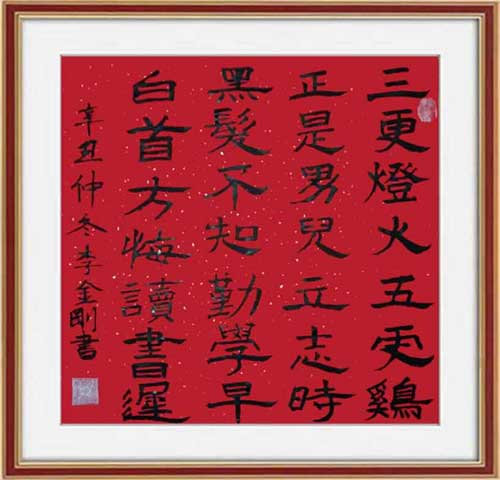 三更燈火五更鷄
正是男兒立志時
黑髮不知勤學早
白首方悔讀書遲
辛丑仲冬李金剛書